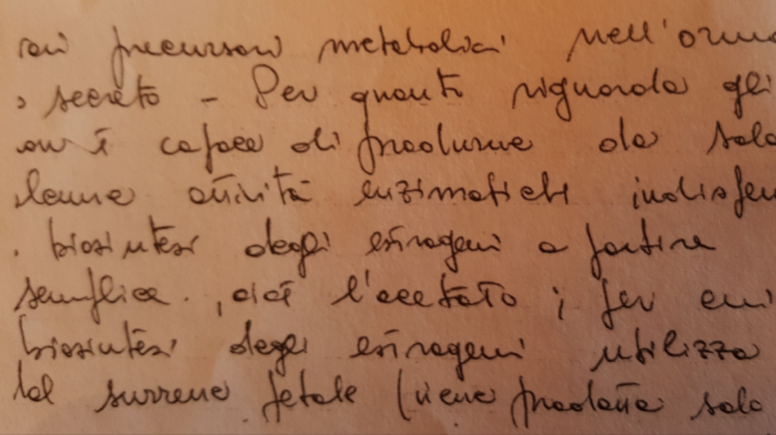 precursori metabolici nell'ormo
secreto - Per quanto riguarda gli
non è capace di produrne da solo
alcune attività enzimatiche indispen
biosintesi degli estrogeni a partire
semplice, cioè l'acetato; per cui
biosintesi degli estrogeni utilizza
dal surrene fetale (viene prodotta solo